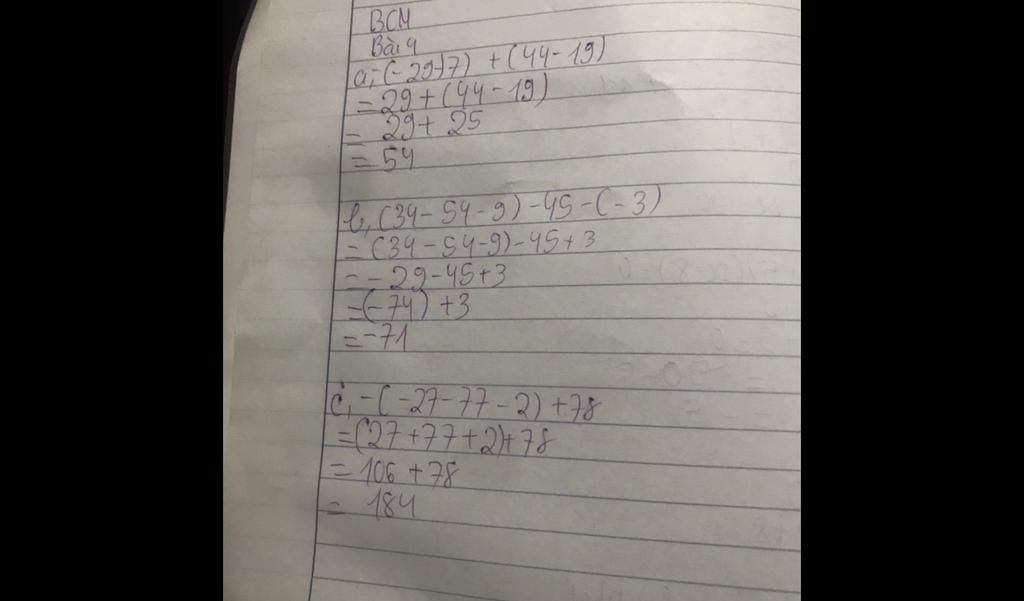 BCM
Bài 4
a, (-29+7) + (44-19)
= 29 + (44-19)
= 29 + 25
= 54
b, (34-54-9)-45-(-3)
= (34-54-9)-45+3
= -29-45+3
= (-74) +3
= -71
c, -(-27-77-2) +78
= (27+77+2)+78
= 106 +78
= 184